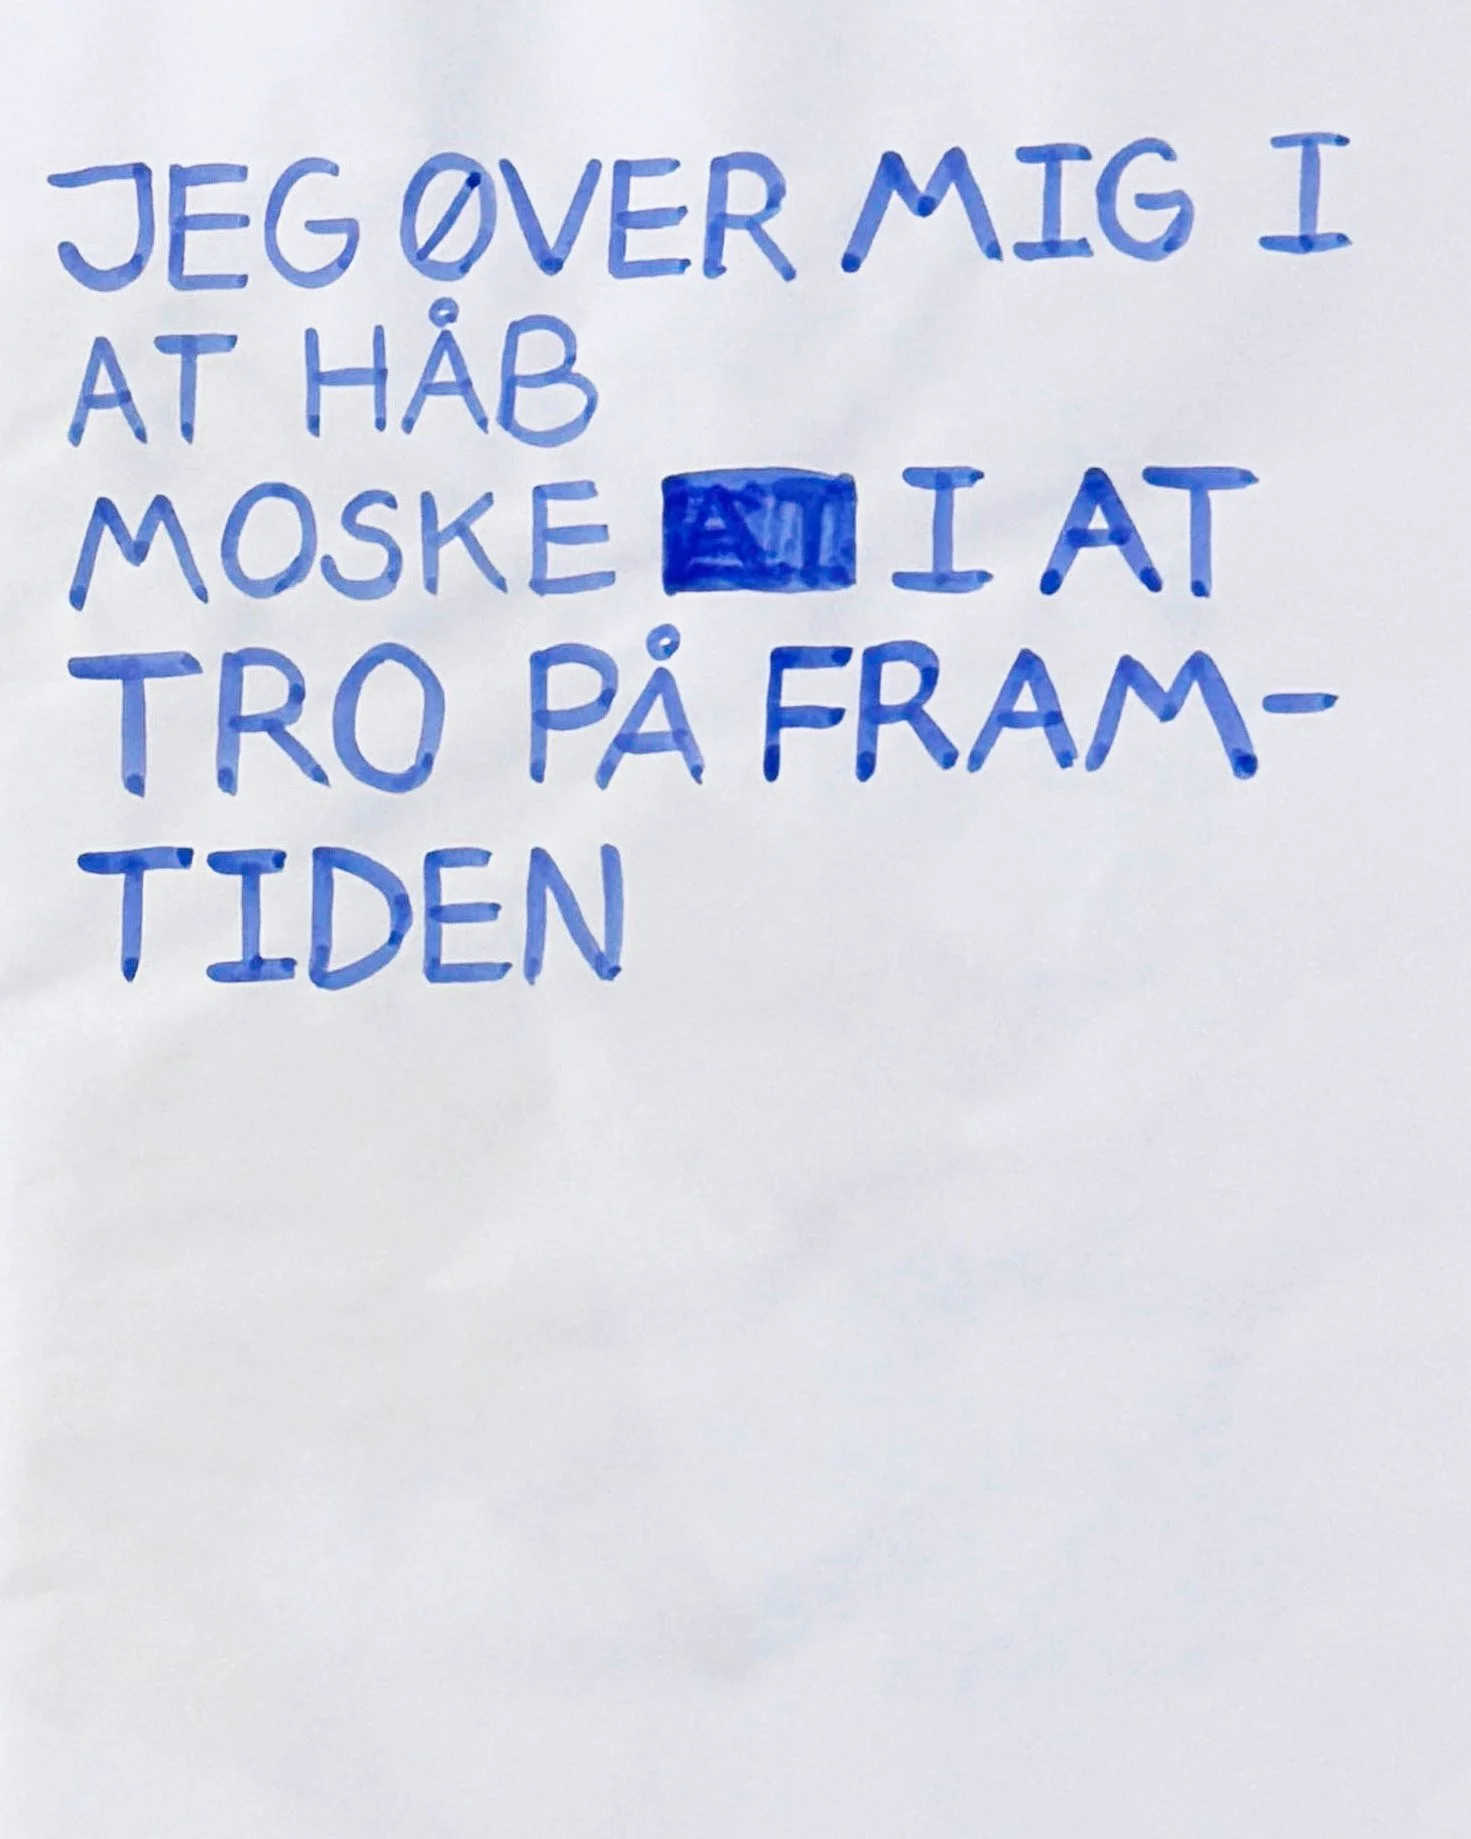 JEG ØVER MIG I
AT HÅB
MOSKE I AT
TRO PÅ FRAM-
TIDEN